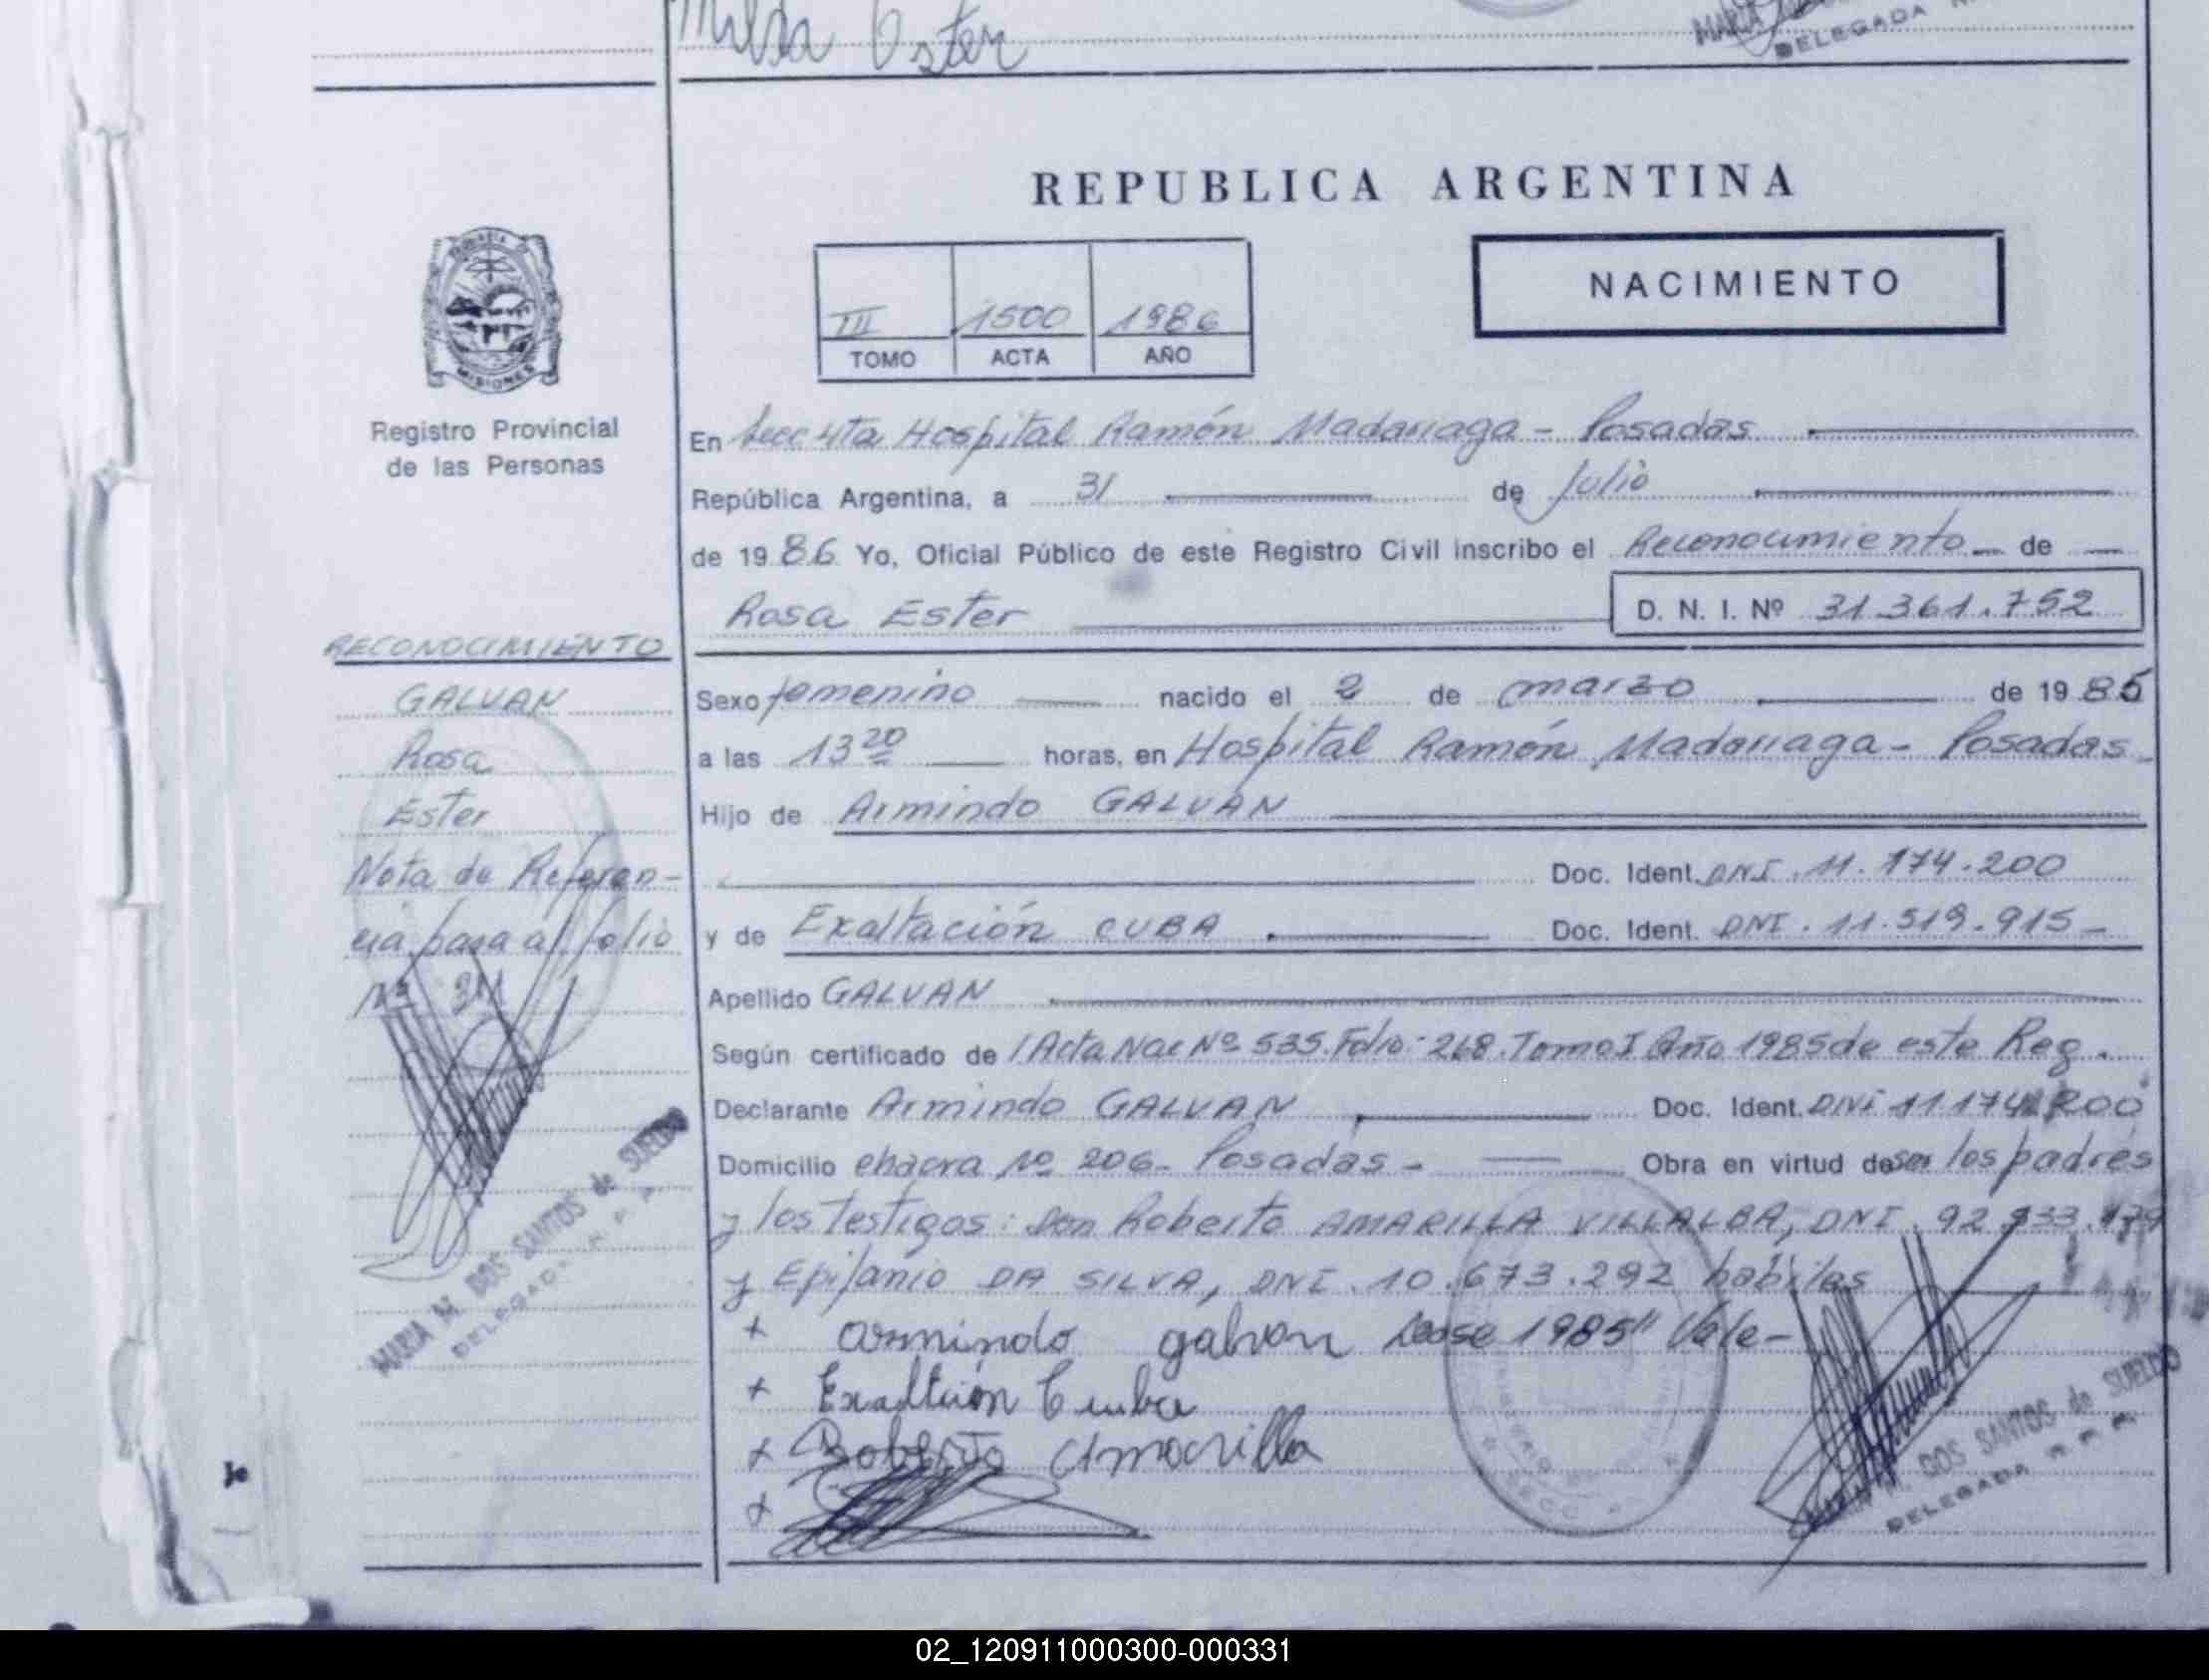 Ester
DELEGADA
REPUBLICA ARGENTINA
NACIMIENTO
III 1500 1986
TOMO ACTA AÑO
MISIONES
Registro Provincial
de las Personas
En Secc 4ta Hospital Ramón Madariaga - Posadas
República Argentina, a 31 de Julio
de 1986 Yo, Oficial Público de este Registro Civil inscribo el Reconocimiento de
Rosa Ester D. N. I. Nº 31.361.752
RECONOCIMIENTO
GALVAN
Rosa
Ester
Nota de Referen-
cia pasa al folio
Nº 311
MARIA M. DOS SANTOS de SUELDO
DELEGADA R. P. P.
Sexo femenino nacido el 2 de marzo de 1985
a las 13 20 horas, en Hospital Ramón Madariaga - Posadas
Hijo de Armindo GALVAN
Doc. Ident. DNI. 11.174.200
y de Exaltación CUBA Doc. Ident. DNI. 11.519.915-
Apellido GALVAN
Según certificado de / Acta Nac Nº 535. Folio: 268. Tomo I Año 1985 de este Reg.
Declarante Armindo GALVAN Doc. Ident. DNI 11174200
Domicilio chacra Nº 206- Posadas- Obra en virtud de ser los padres
y los testigos: Don Roberto AMARILLA VILLALBA, DNI. 92.
y Epifanio DA SILVA, DNI. 10.673.292 habiles
+ armindo galvan Lease 1985" Vale-
+ Exaltción Cuba
+ Roberto Amarilla
+
DOS SANTOS de SUELDO
DELEGADA R. P. P.
02_120911000300-000331